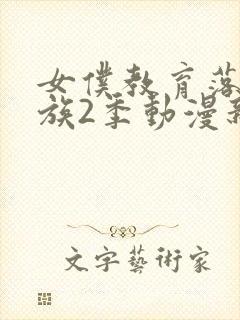 女僕教育落
族2季動漫新
文字藝術家